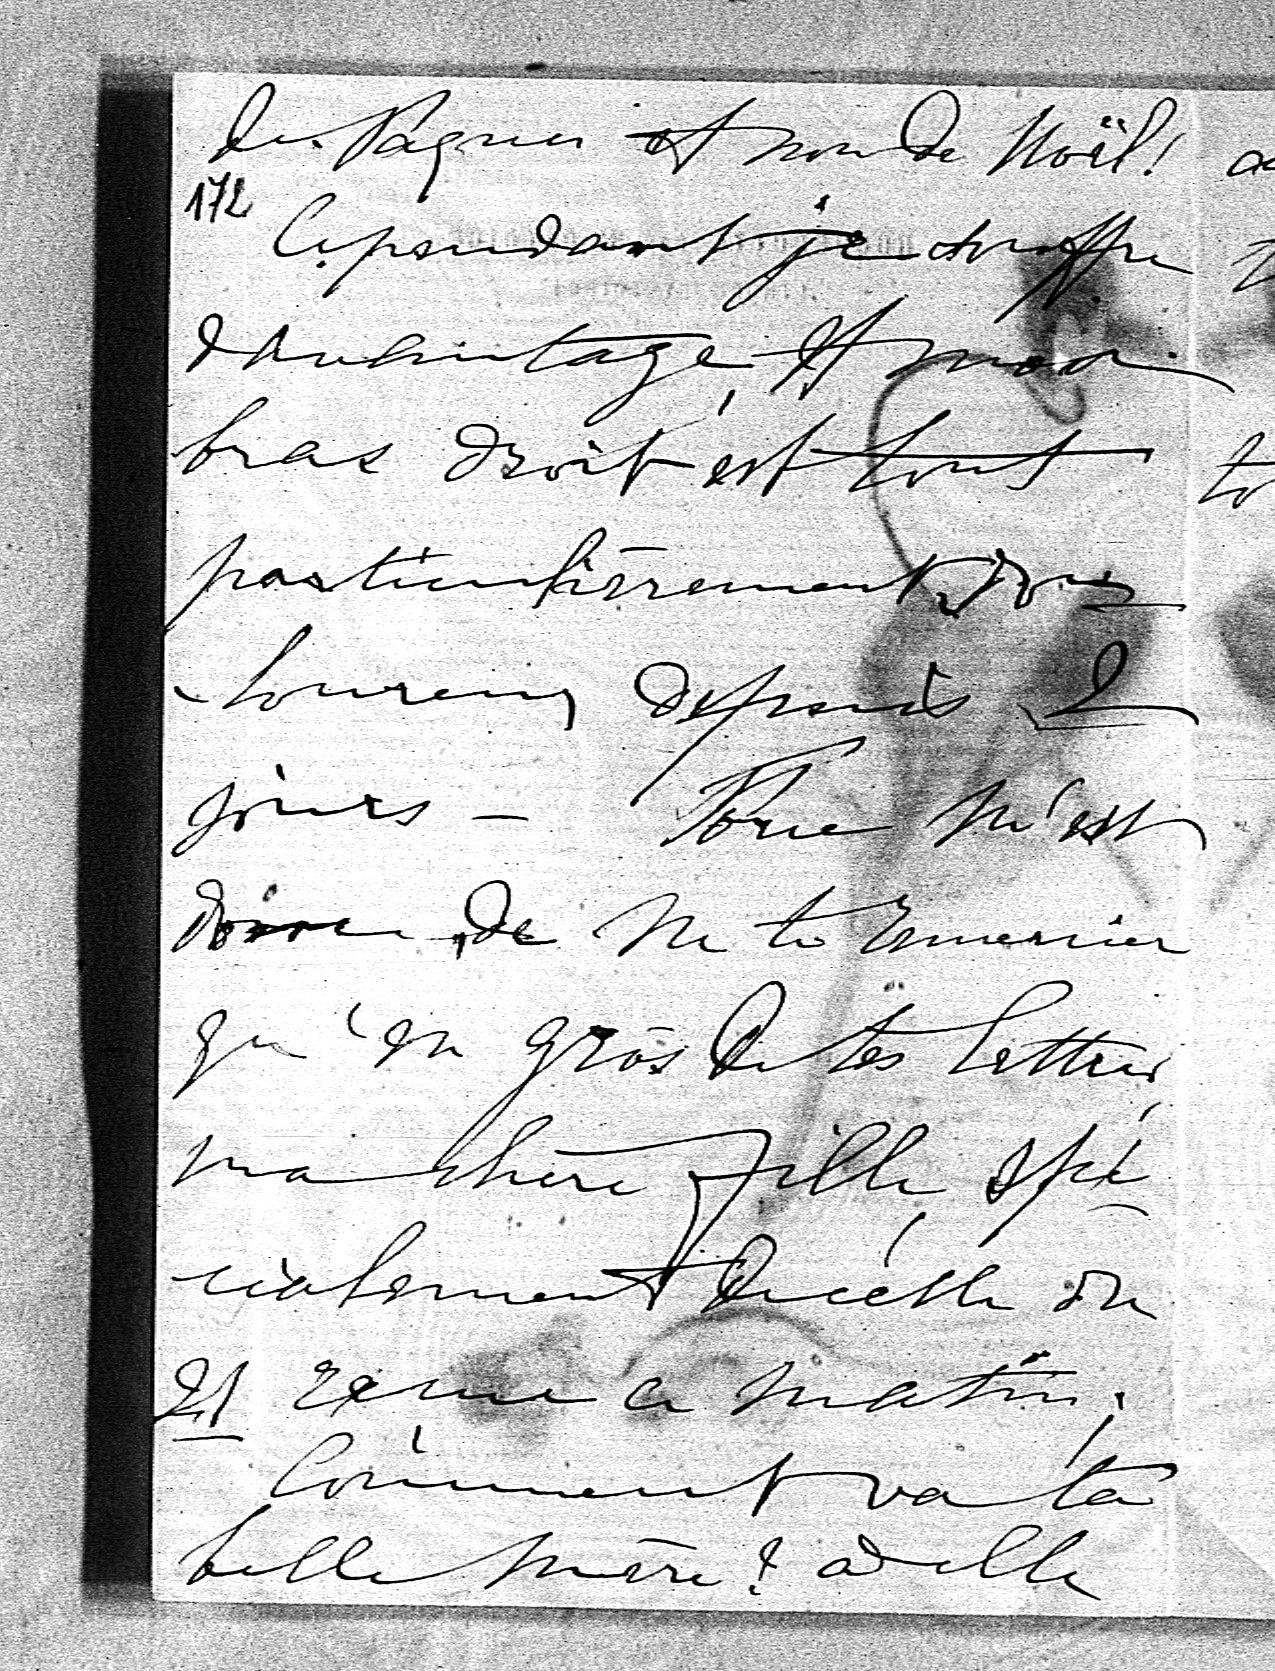 de Pâques et non de Noël!
172
Cependant je souffre
davantage, et mon
bras droit est tout
particulièrement dou-
loureux depuis 2
jours — Force m'est
donc de ne te remercier
qu'en gros de tes lettres,
ma chère fille, spé-
cialement de celle du
21 reçue ce matin.
Comment va ta
belle mère? a d'elle